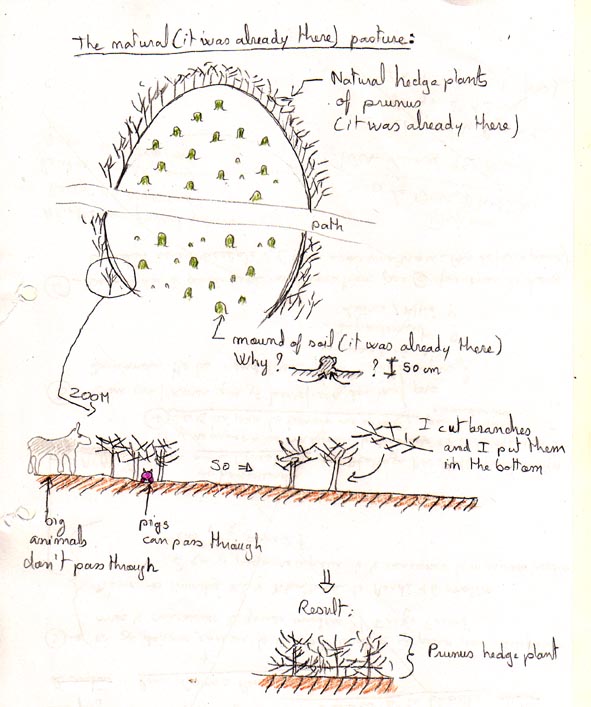 The natural (it was already there) pasture:
Natural hedge plants
of prunus
(it was already there)
path
mound of soil (it was already there)
Why ? ? 50 cm
ZOOM
I cut branches
and I put them
in the bottom
SO ⇒
big
animals
don't pass through
pigs
can pass through
Result:
Prunus hedge plant